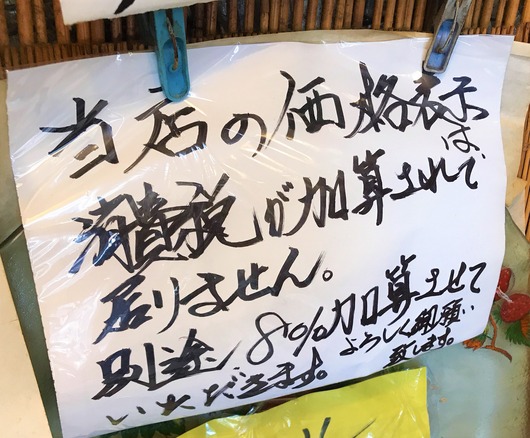 当店の価格表示は、
消費税が加算されて
居りません。
別途8%加算させて
いただきます。
よろしく御願い
致します。